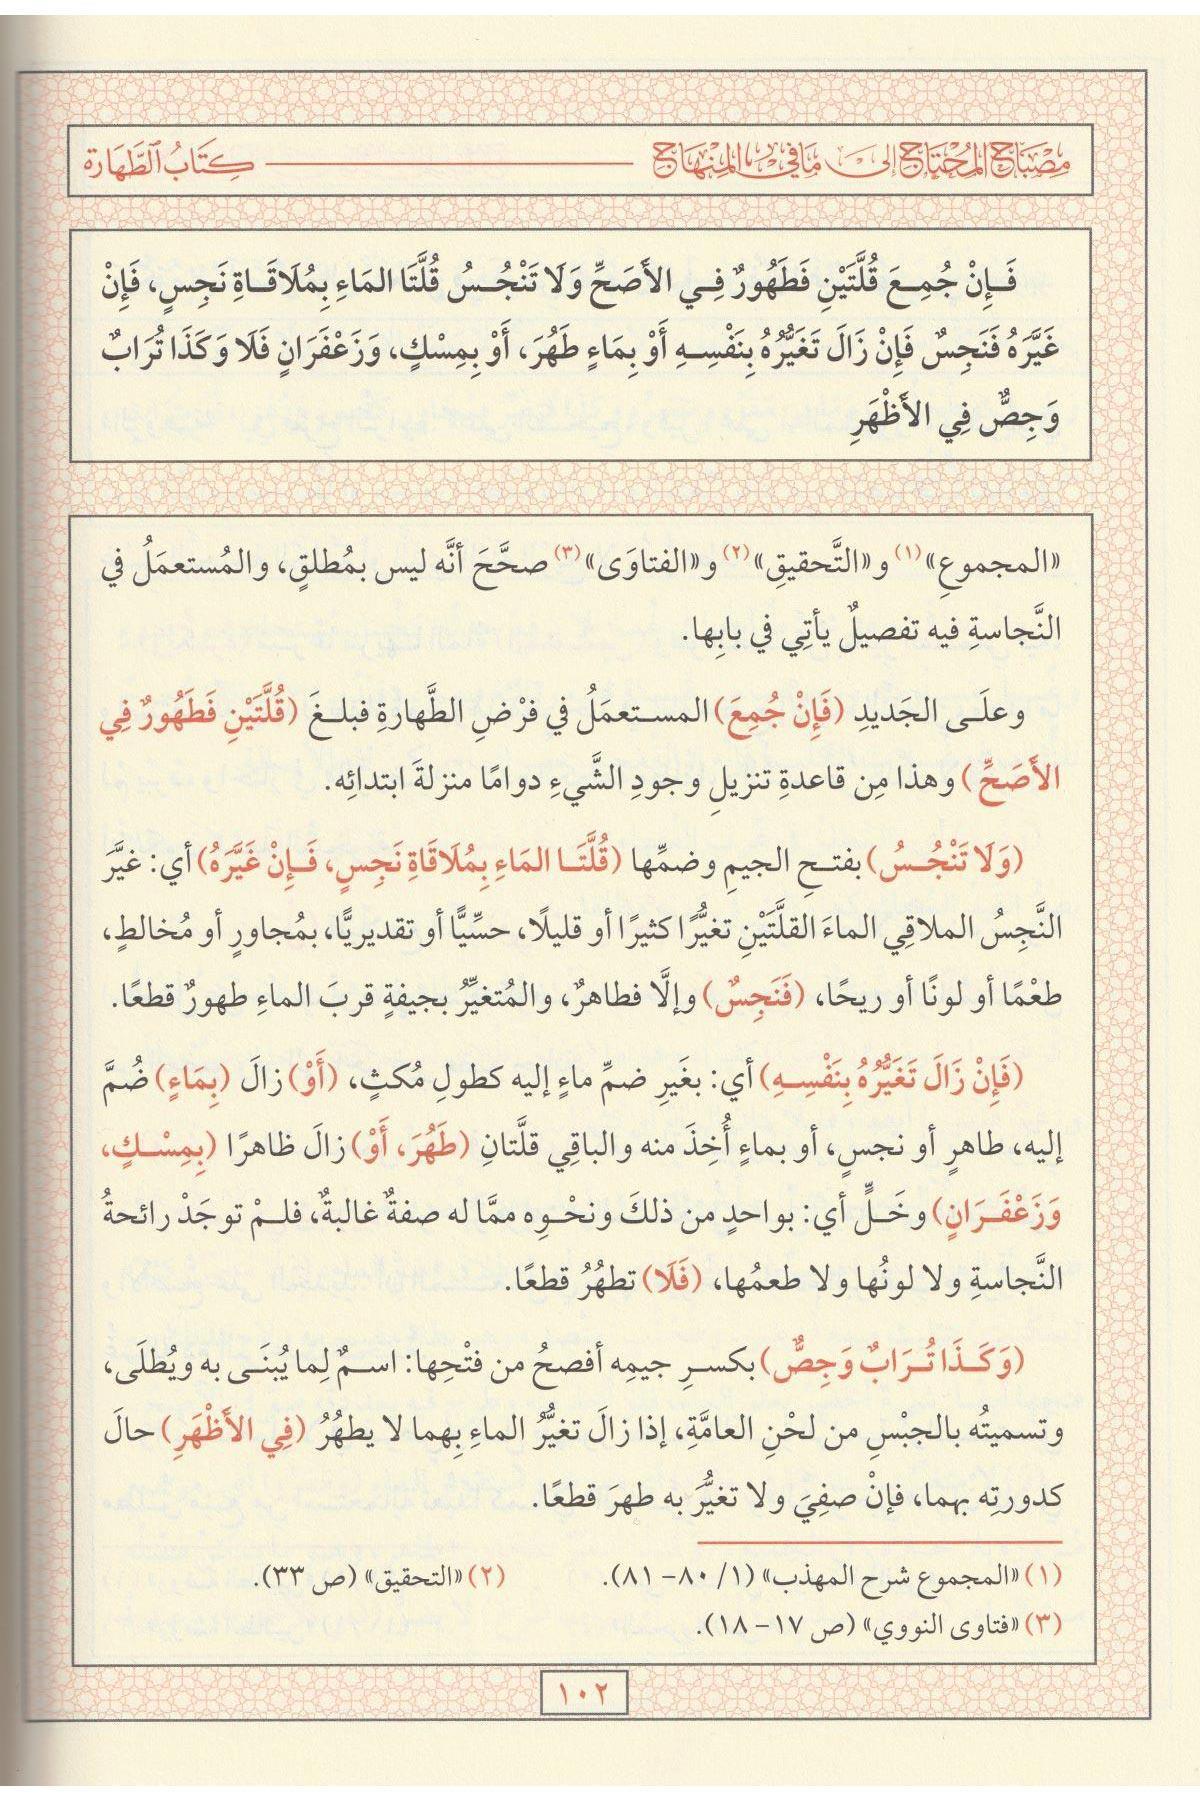 مِصْبَاحُ المُحْتَاجِ إِلَى مَا فِي المِنْهَاجِ
كِتَابُ الطَّهَارَة
فَإِنْ جُمِعَ قُلَّتَيْنِ فَطَهُورٌ فِي الأَصَحِّ وَلَا تَنْجُسُ قُلَّتَا المَاءِ بِمُلَاقَاةِ نَجِسٍ، فَإِنْ
غَيَّرَهُ فَنَجِسٌ فَإِنْ زَالَ تَغَيُّرُهُ بِنَفْسِهِ أَوْ بِمَاءٍ طَهُرَ، أَوْ بِمِسْكٍ، وَزَعْفَرَانٍ فَلَا وَكَذَا تُرَابٌ
وَجِصٌّ فِي الأَظْهَرِ
«المجموعِ»(١) و«التَّحقيقِ»(٢) و«الفتاوَى»(٣) صحَّحَ أنَّه ليس بمُطلقٍ، والمُستعمَلُ في
النَّجاسةِ فيه تفصيلٌ يأتِي في بابِها.
وعلَى الجَديدِ (فَإِنْ جُمِعَ) المستعمَلُ في فرْضِ الطَّهارةِ فبلغَ (قُلَّتَيْنِ فَطَهُورٌ فِي
الأَصَحِّ) وهذا مِن قاعدةِ تنزيلِ وجودِ الشَّيءِ دوامًا منزلةَ ابتدائِه.
(وَلَا تَنْجُسُ) بفتحِ الجيمِ وضمِّها (قُلَّتَا المَاءِ بِمُلَاقَاةِ نَجِسٍ، فَإِنْ غَيَّرَهُ) أي: غيَّرَ
النَّجِسُ الملاقِي الماءَ القلَّتَيْنِ تغيُّرًا كثيرًا أو قليلًا، حسِّيًّا أو تقديريًّا، بمُجاورٍ أو مُخالطٍ،
طعْمًا أو لونًا أو ريحًا، (فَنَجِسٌ) وإلَّا فطاهرٌ، والمُتغيِّرُ بجيفةٍ قربَ الماءِ طهورٌ قطعًا.
(فَإِنْ زَالَ تَغَيُّرُهُ بِنَفْسِهِ) أي: بغَيرِ ضمِّ ماءٍ إليه كطولِ مُكثٍ، (أَوْ) زالَ (بِمَاءٍ) ضُمَّ
إليه، طاهرٍ أو نجسٍ، أو بماءٍ أُخِذَ منه والباقِي قلَّتانِ (طَهُرَ، أَوْ) زالَ ظاهرًا (بِمِسْكٍ،
وَزَعْفَرَانٍ) وخَلٍّ أي: بواحدٍ من ذلكَ ونحْوِه ممَّا له صفةٌ غالبةٌ، فلمْ توجَدْ رائحةُ
النَّجاسةِ ولا لونُها ولا طعمُها، (فَلَا) تطهُرُ قطعًا.
(وَكَذَا تُرَابٌ وَجِصٌّ) بكسرِ جيمِه أفصحُ من فتْحِها: اسمٌ لِما يُبنَى به ويُطلَى،
وتسميتُه بالجبْسِ من لحْنِ العامَّةِ، إذا زالَ تغيُّرُ الماءِ بِهما لا يطهُرُ (فِي الأَظْهَرِ) حالَ
كدورتِه بهما، فإنْ صفِيَ ولا تغيُّرَ به طهرَ قطعًا.
(١) «المجموع شرح المهذب» (١/ ٨٠- ٨١). (٢) «التحقيق» (ص ٣٣).
(٣) «فتاوى النووي» (ص ١٧- ١٨).
١٠٢